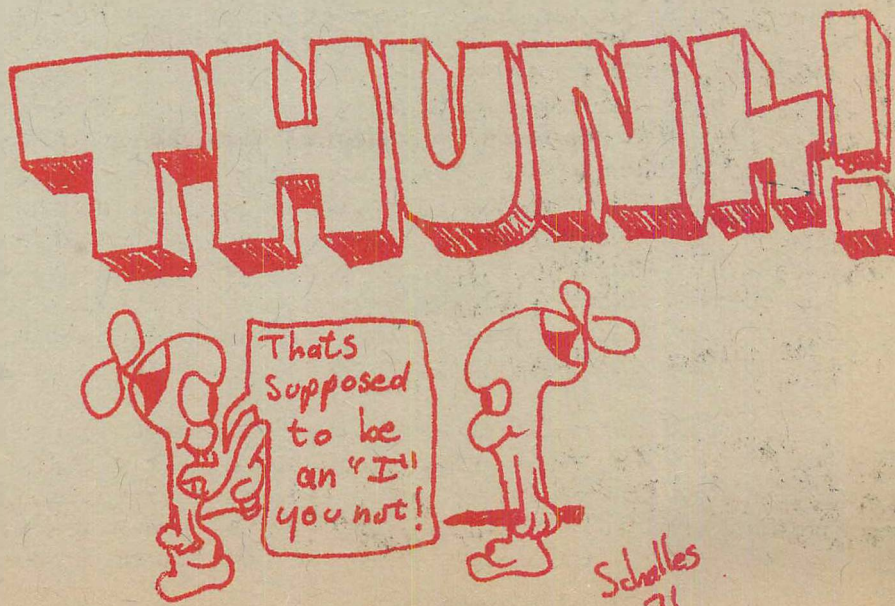 THUNK!
Thats
Supposed
to be
an "I"
you nut!
Schalles
71